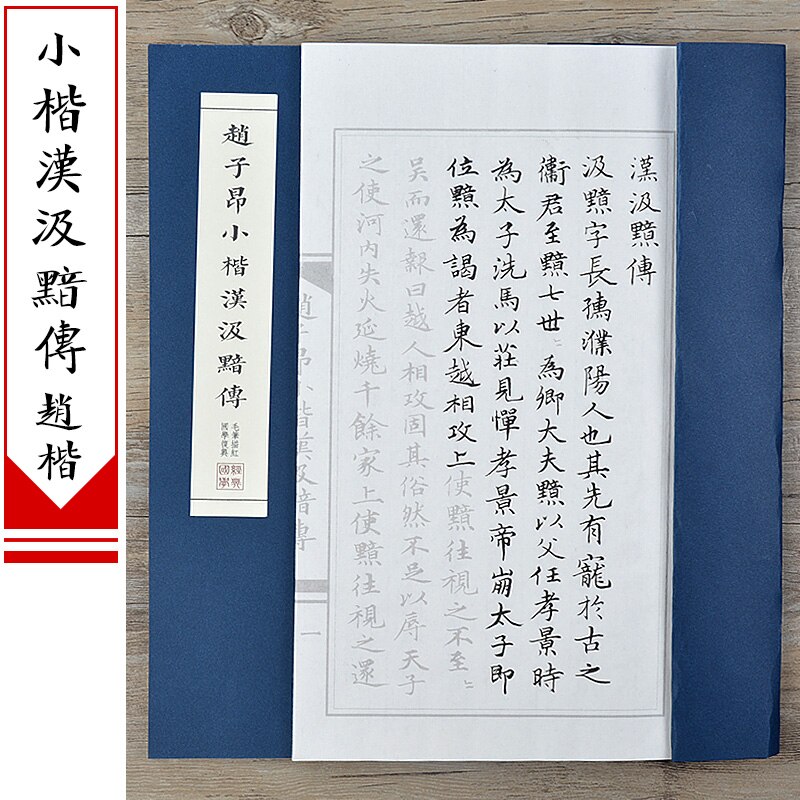 小楷漢汲黯傳趙楷
趙子昂小楷漢汲黯傳
毛筆描紅
國學復興
漢汲黯傳
汲黯字長孺濮陽人也其先有寵於古之
衞君至黯七世〻為卿大夫黯以父任孝景時
為太子洗馬以莊見憚孝景帝崩太子即
位黯為謁者東越相攻上使黯往視之不至〻
吳而還報曰越人相攻固其俗然不足以辱天子
之使河内失火延燒千餘家上使黯往視之還
趙子昂小楷漢汲黯傳
一